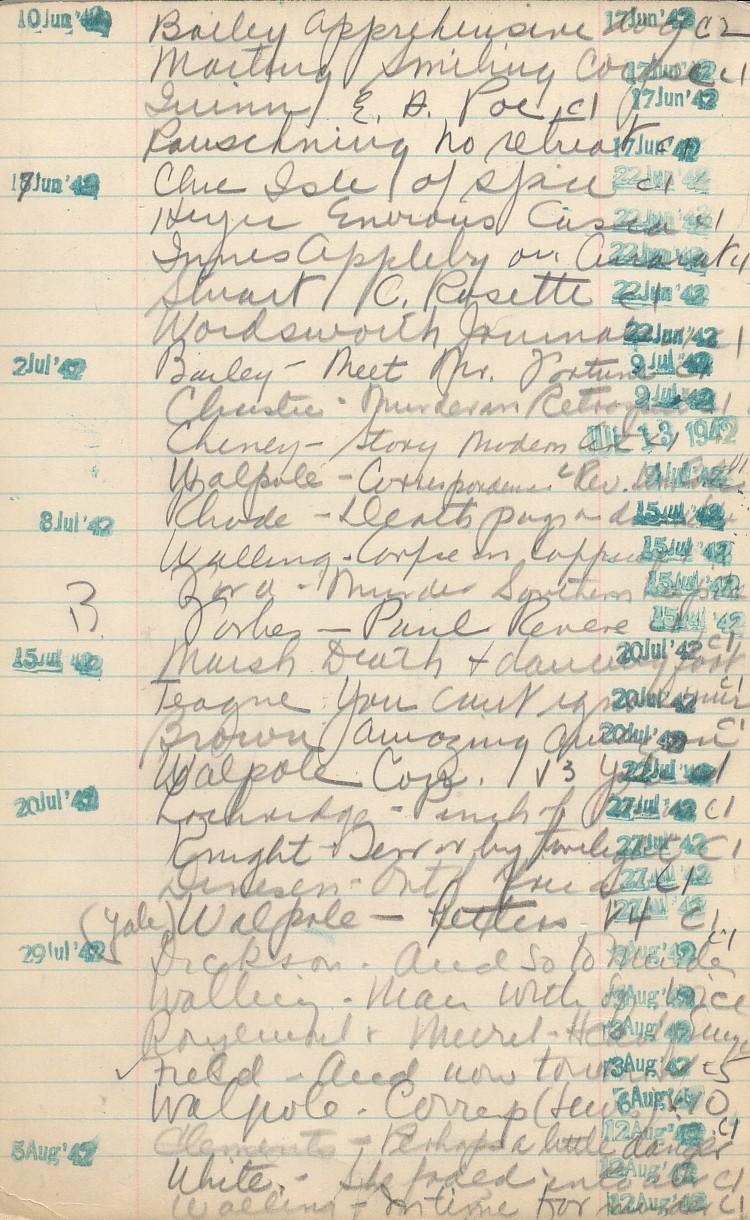 10 Jun '42 Bailey Apprehensive dog c2 17 Jun '42
Marting Smiling Corpse c1 17 Jun '42
Quinn E. A. Poe c1 17 Jun '42
Rauschning no retreat c1 17 Jun '42
17 Jun '42 Clue Isle of Spice c1 22 Jun '42
Heyer Envious Casca c1 22 Jun '42
Innes Appleby on Ararat c1 22 Jun '42
Stuart C. Rosette c1 22 Jun '42
Wordsworth Journal c1 22 Jun '42
2 Jul '42 Bailey - Meet Mr. Fortune c1 9 Jul '42
Christie - Murder in Retrospect c1 9 Jul '42
Cheney - Story Modern Art c1 JUL 13 1942
Walpole - Correspondence c Rev. Jul '42
8 Jul '42 Rhode - Death pagoda 15 Jul '42
Walling - Corpse in 15 Jul '42
Ford - Murder Southern 15 Jul '42
B Forbes - Paul Revere 15 Jul '42
15 Jul '42 Marsh Death & dancing foot c1 20 Jul '42
Teague You can't ignore c1 20 Jul '42
Brown amazing c1 20 Jul '42
Walpole Corr. v3 Yale c1 22 Jul '42
20 Jul '42 Lockridge - Pinch of c1 27 Jul '42
Knight - Terror by twilight c1 27 Jul '42
Dinesen - Out c1 27 Jul '42
(Yale) Walpole - letters v4 c1 27 Jul '42
29 Jul '42 Dickson - And so to Murder c1 Aug '42
Walling - Man with Aug '42
& Aug '42
✓ Field - And now tomorrow c5 3 Aug '42
Walpole - Corresp v10 6 Aug '42
5 Aug '42 Clements - Perhaps a little danger c1 12 Aug '42
White - She faded into air c1 12 Aug '42
Walling - In time for murder c1 12 Aug '42